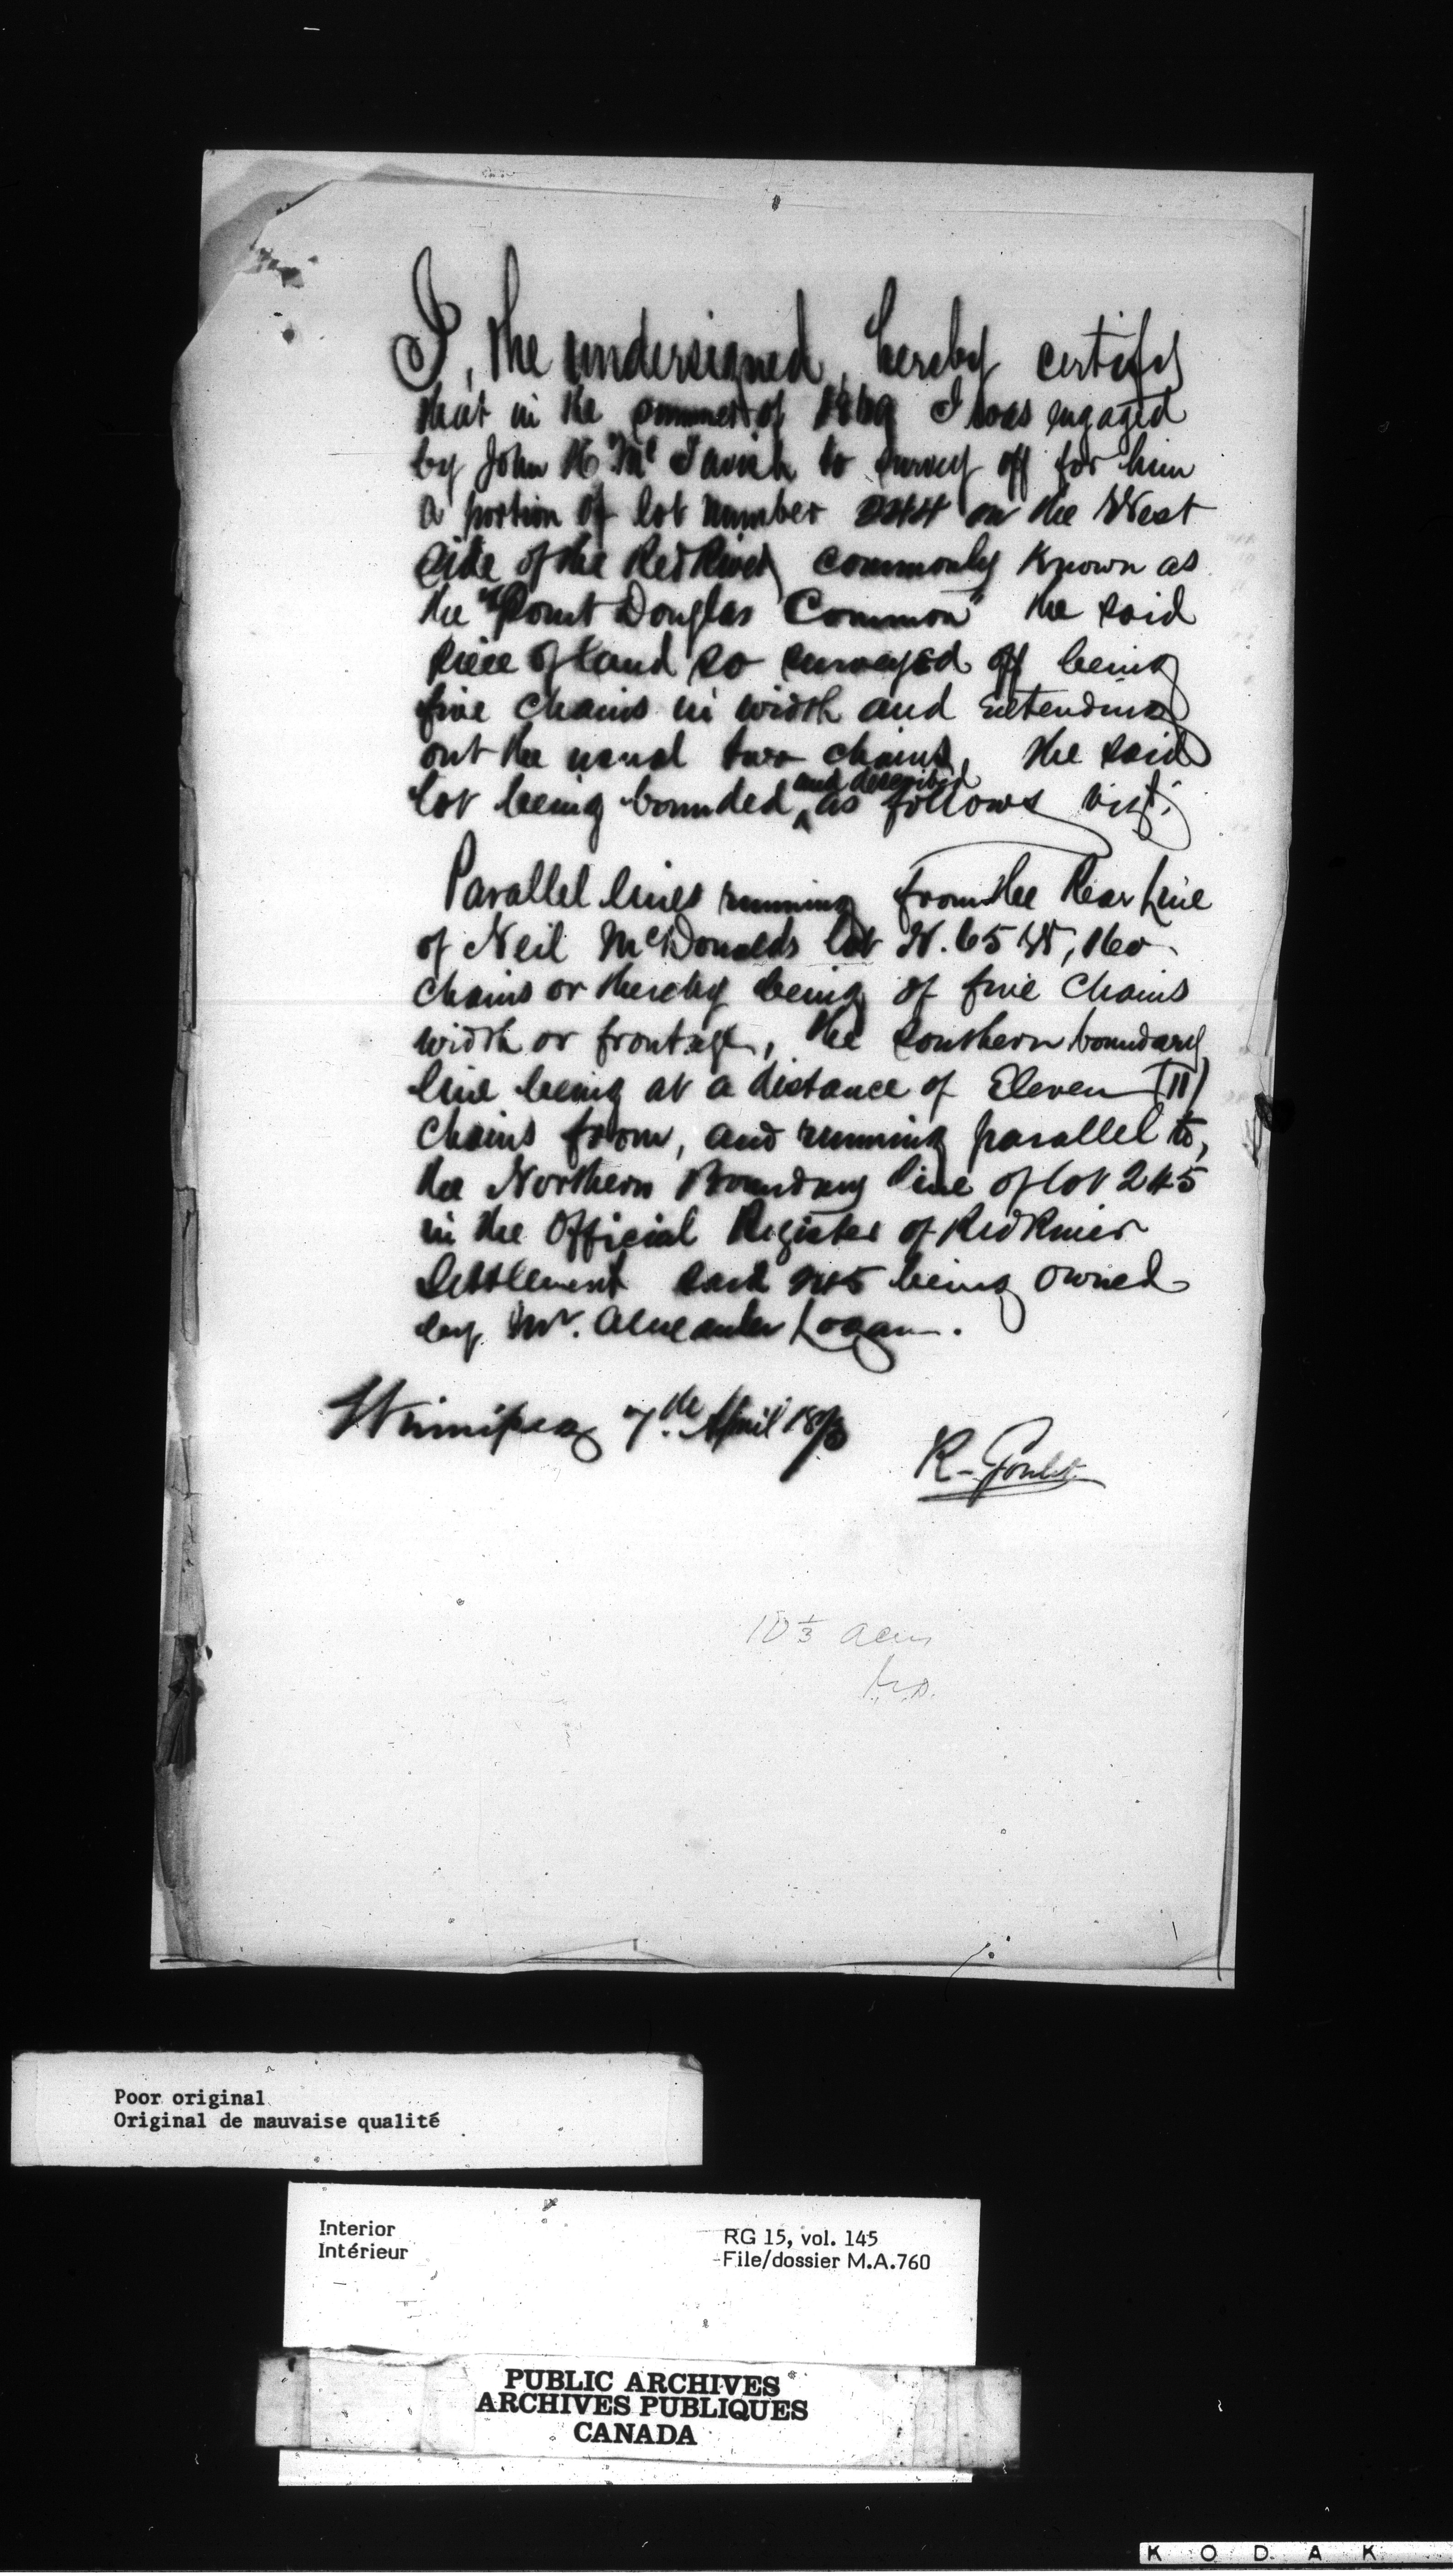 I, the undersigned, hereby certify
that in the summer of 1869 I was engaged
by John H Mc Tavish to survey off for him
a portion of lot number 244 on the West
side of the Red River commonly known as
the "Point Douglas Common" the said
piece of land so surveyed off being
five chains in width and extending
out the usual two chains, the said
lot being bounded and described as follows viz:
Parallel lines running from the Rear Line
of Neil McDonalds lot N. 65 W, 160
chains or thereby being of five chains
width or frontage, the southern boundary
line being at a distance of Eleven (11)
chains from, and running parallel to,
the Northern Boundary line of lot 245
in the Official Register of Red River
Settlement said 245 being owned
by Mr. Alexander Logan.
Winnipeg 7th. April 1873
R- Goulet
10 1/3 acres
Poor original
Original de mauvaise qualité
Interior
Intérieur
RG 15, vol. 145
File/dossier M.A.760
PUBLIC ARCHIVES
ARCHIVES PUBLIQUES
CANADA
KODAK